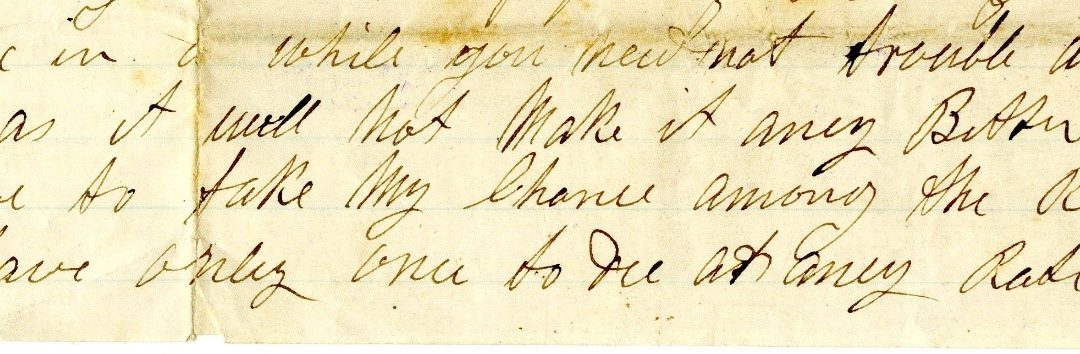 in a while you need not trouble
as it will not Make it aney Better
to take My Chance among the
have onley once to Die at aney Rate